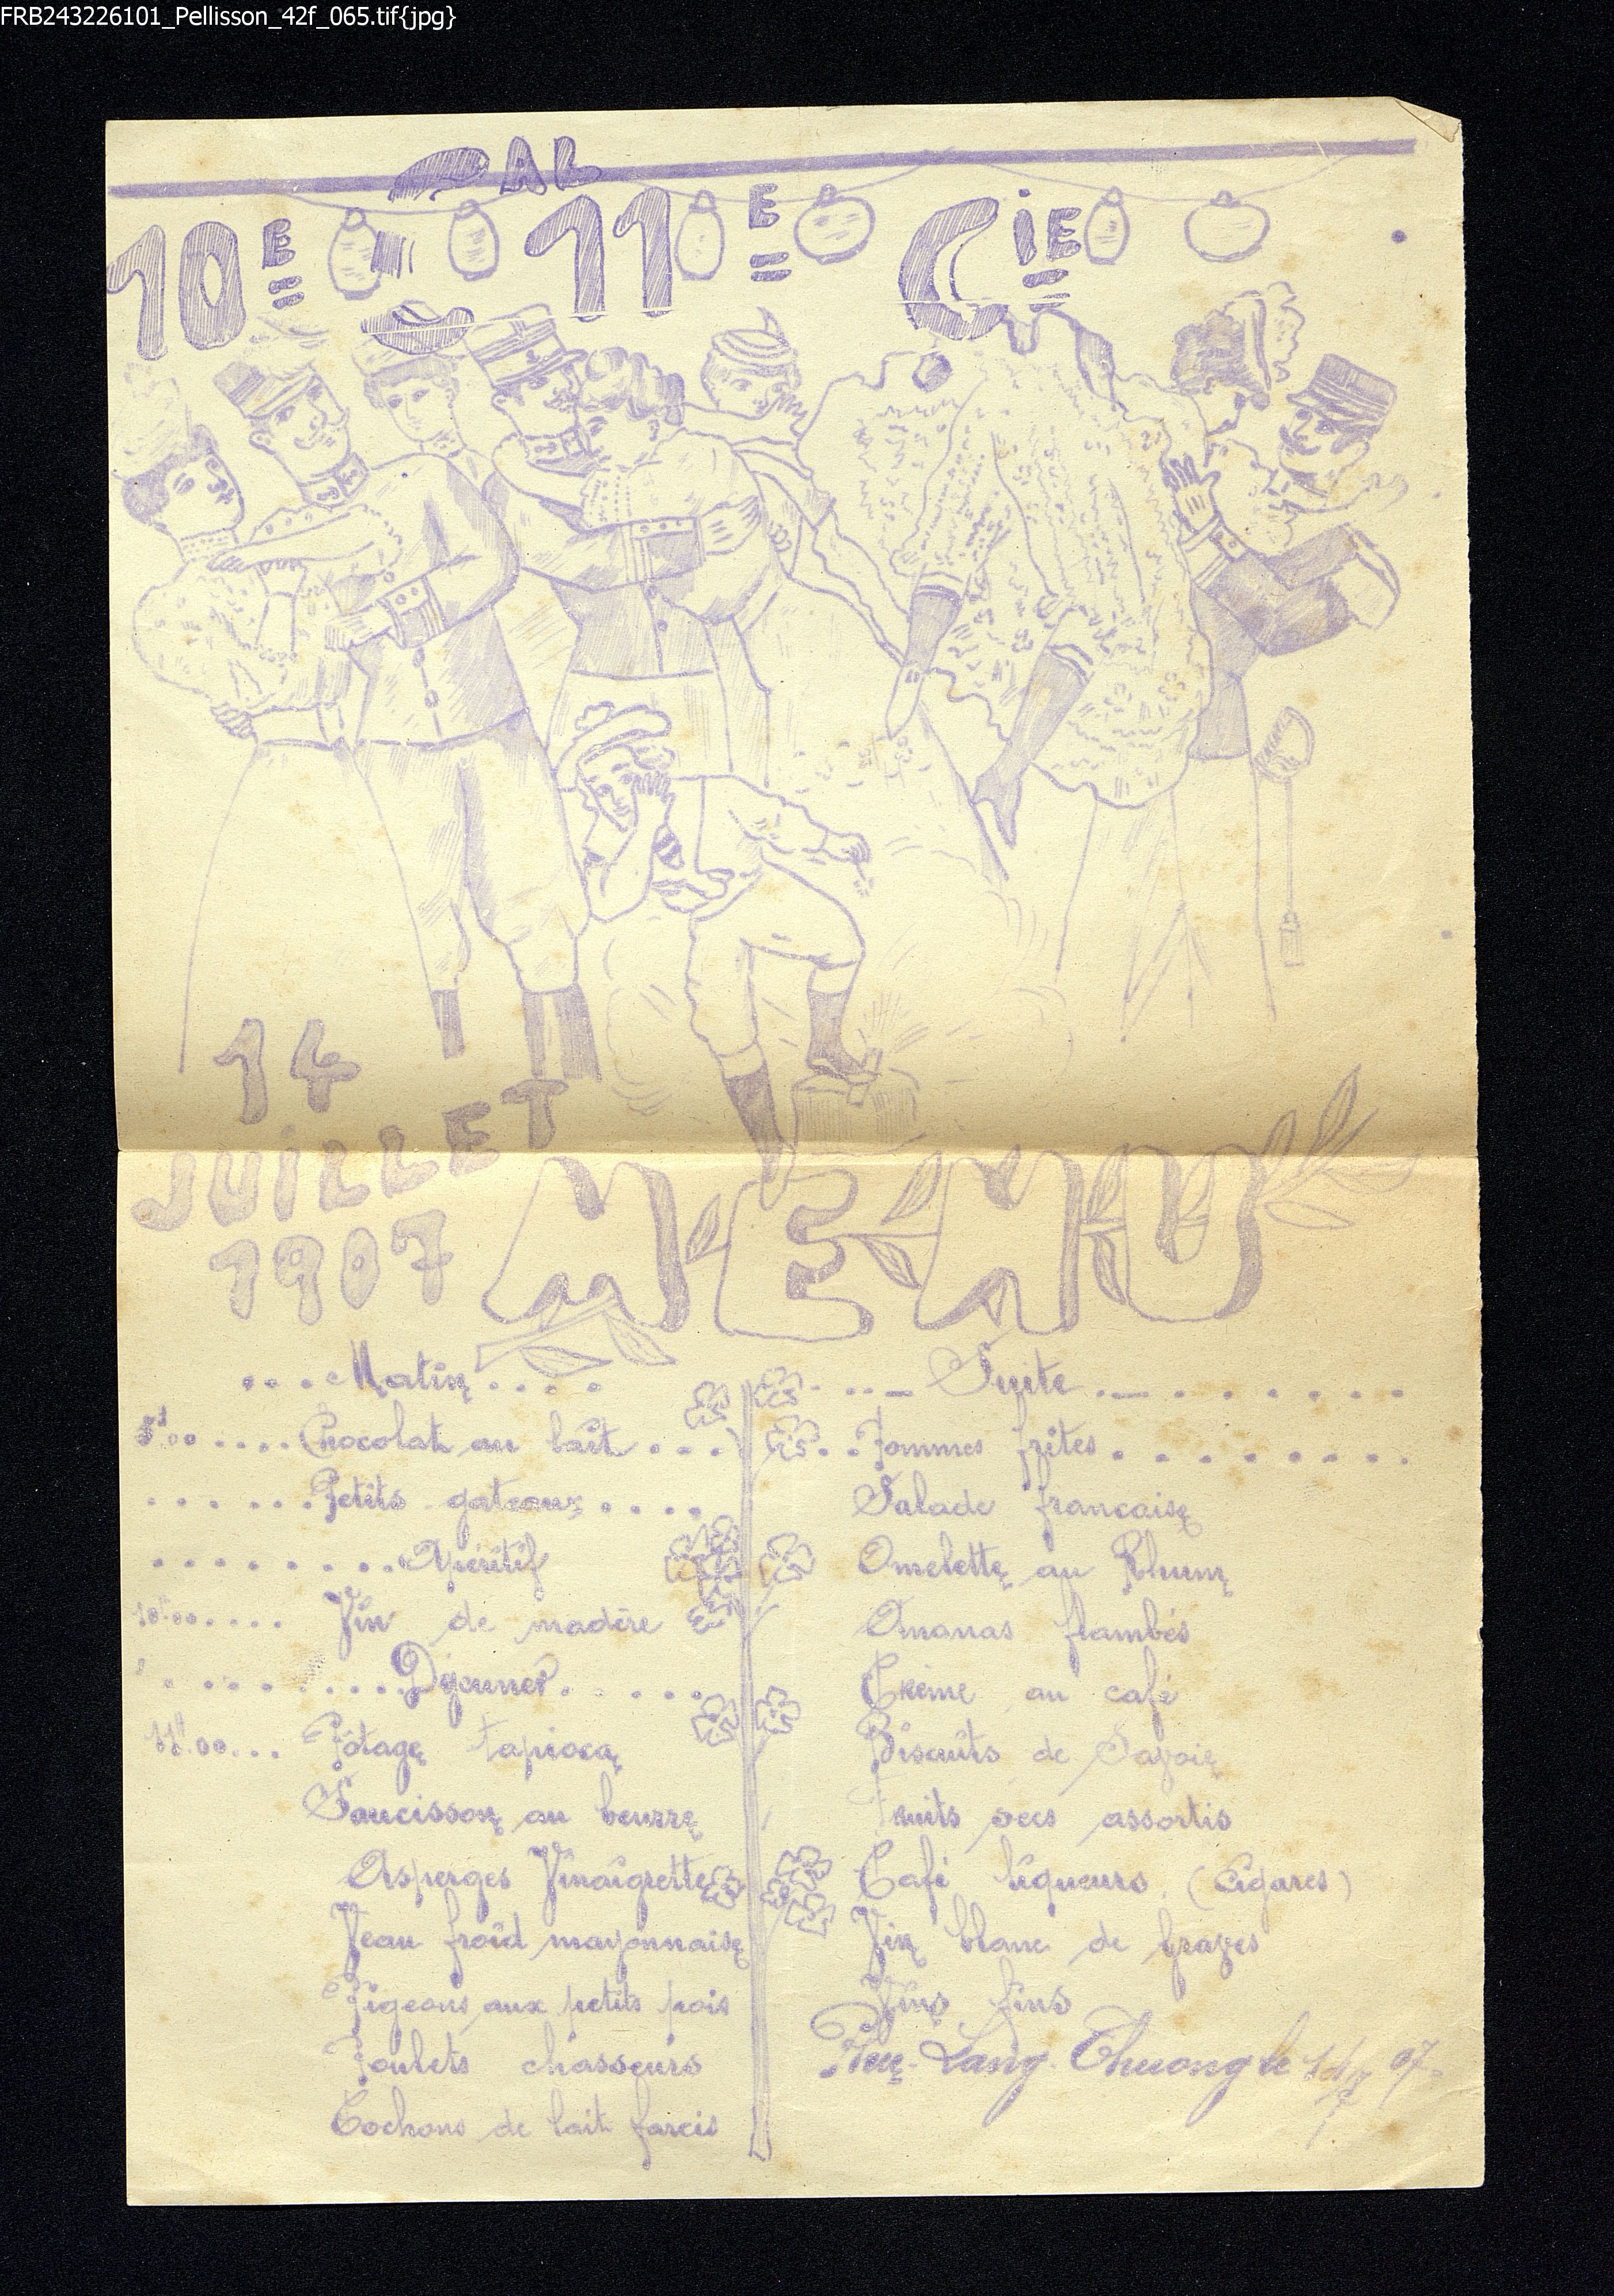 FRB243226101_Pellisson_42f_065.tif{jpg}
BAL
10E 11E CiE
14
JUiLLET
1907
MENU
... Matin ....
5h00 .... Chocolat au lait ...
...... Petits gateaux ....
........ Apéritif
10h00 .... Vin de madère
......... Déjeuner .....
11h.00... Potage tapioca
Saucisson au beurre
Asperges Vinaigrette
Veau froid mayonnaise
Pigeons aux petits pois
Poulets chasseurs
Cochons de lait farcis
... Suite ........
.. Pommes frites ........
Salade francaise
Omelette au Rhum
Ananas flambés
Crème au café
Biscuits de Savoie
Fruits secs assortis
Café liqueurs (Cigares)
Vin blanc de graves
Vins fins
Phu-Lang-Thuong le 14/7 07